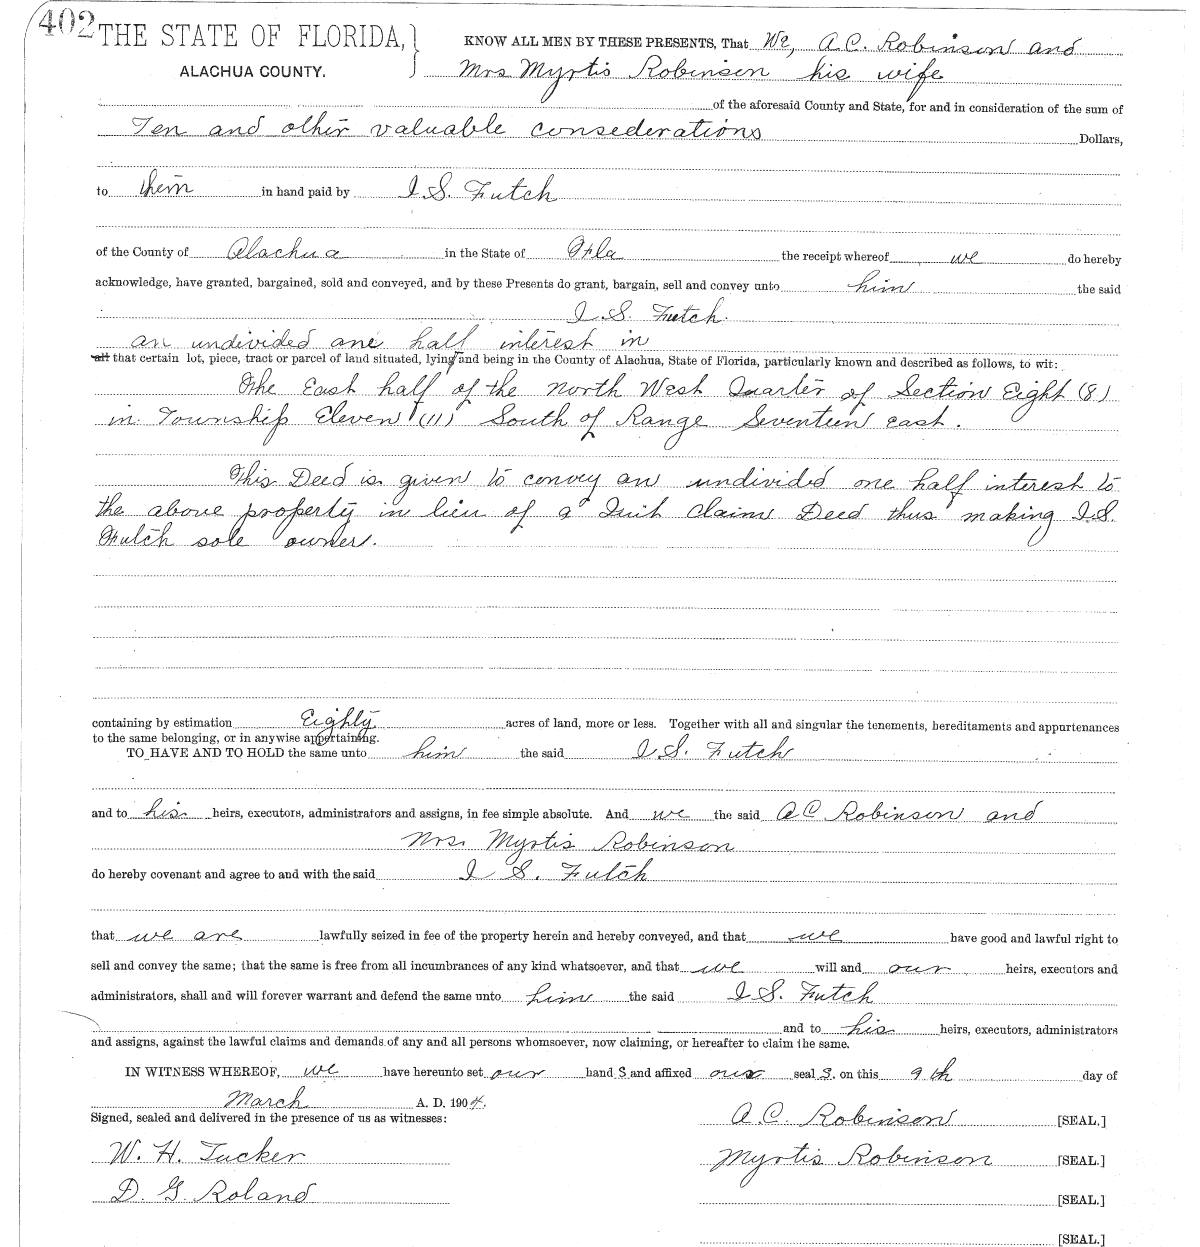 402
THE STATE OF FLORIDA, } KNOW ALL MEN BY THESE PRESENTS, That We, A.C. Robinson and
ALACHUA COUNTY. Mrs Myrtis Robinson his wife
of the aforesaid County and State, for and in consideration of the sum of
Ten and other valuable consederations Dollars,
to them in hand paid by I.S. Futch
of the County of Alachua in the State of Fla the receipt whereof we do hereby
acknowledge, have granted, bargained, sold and conveyed, and by these Presents do grant, bargain, sell and convey unto him the said
I.S. Futch.
an undivided one half interest in
all that certain lot, piece, tract or parcel of land situated, lying and being in the County of Alachua, State of Florida, particularly known and described as follows, to wit:
The East half of the North West Quarter of Section Eight (8)
in Township Eleven (11) South of Range Seventeen east.
This Deed is given to convey an undivided one half interest to
the above property in lieu of a Quit Claim Deed thus making I.S.
Futch sole owner.
containing by estimation Eighty acres of land, more or less. Together with all and singular the tenements, hereditaments and appurtenances
to the same belonging, or in anywise appertaining.
TO HAVE AND TO HOLD the same unto him the said I.S. Futch
and to his heirs, executors, administrators and assigns, in fee simple absolute. And we the said A C Robinson and
Mrs. Myrtis Robinson
do hereby covenant and agree to and with the said I S. Futch
that we are lawfully seized in fee of the property herein and hereby conveyed, and that we have good and lawful right to
sell and convey the same; that the same is free from all incumbrances of any kind whatsoever, and that we will and our heirs, executors and
administrators, shall and will forever warrant and defend the same unto him the said I S. Futch
and to his heirs, executors, administrators
and assigns, against the lawful claims and demands of any and all persons whomsoever, now claiming, or hereafter to claim the same.
IN WITNESS WHEREOF, we have hereunto set our hand S and affixed our seal S. on this 9th day of
March A. D. 1904.
Signed, sealed and delivered in the presence of us as witnesses: A.C. Robinson [SEAL.]
W. H. Tucker Myrtis Robinson [SEAL.]
D. G. Roland [SEAL.]
[SEAL.]